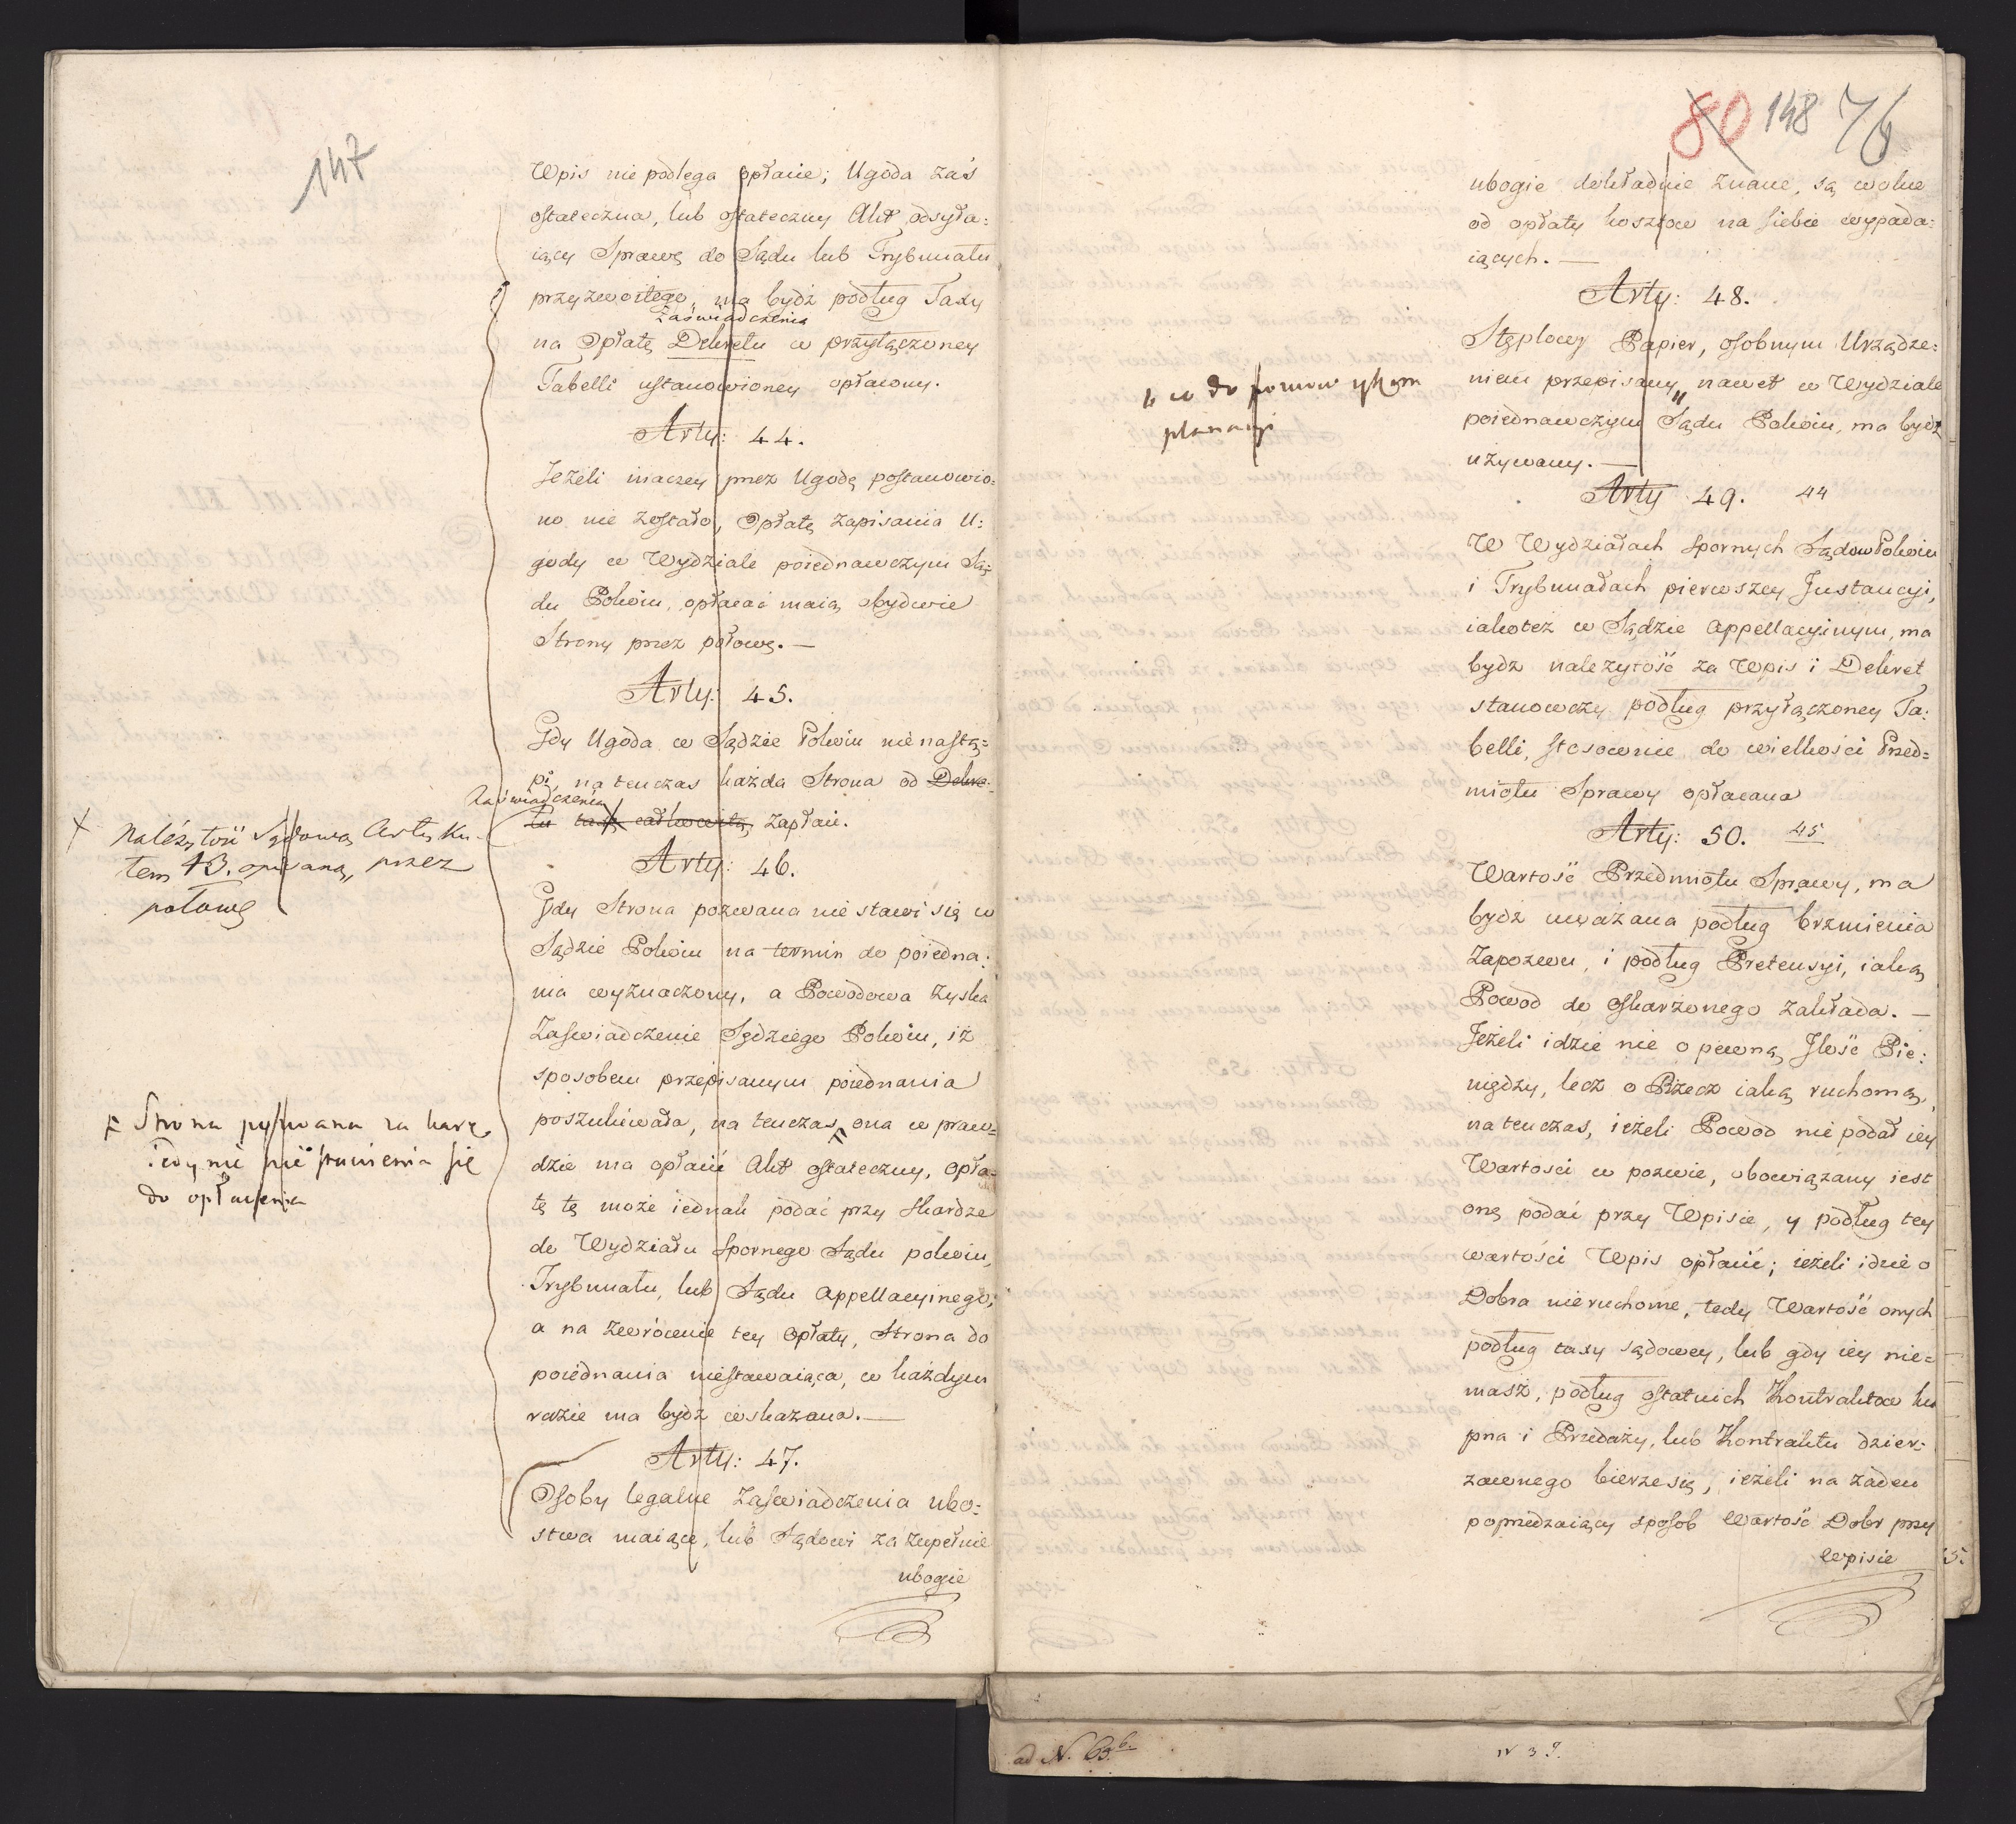 147
Wpis nie podlega opłacie; Ugoda zaś
ostateczna, lub ostateczny Akt odsyła:
iący Sprawę do Sądu lub Trybunału
przyzwoitego, ma bydź podług Taxy
Zaświadczenia
na Opłatę Dekretu w przyłączoney
Tabelli ustanowioney opłacony.
Arty: 44.
Jeżeli inaczey przez Ugodę postanowio:
no nie zostało, Opłatę zapisania U:
gody w Wydziale poiednawczym Są:
du Pokoiu, opłacać maią obydwie
Strony przez połowę. —
Arty: 45.
Gdy Ugoda w Sądzie Pokoiu nie nastą:
pi, na tenczas każda Strona od Dekre:
Zaświadczenia
tu taxę całkowitą zapłaci.
+ Należytość Sądową Artyku-
łem 43. opisaną, przez
połowę
Arty: 46.
Gdy Strona pozwana nie stawi się w
Sądzie Pokoiu na termin do poiedna:
nia wyznaczony, a Powodowa zyska
Zaświadczenie Sędziego Pokoiu, iż
sposobem przepisanym poiednania
poszukiwała, na tenczas ona w praw:
dzie ma opłacić Akt ostateczny, opła:
tę tę może iednak podać przy skardze
do Wydziału Spornego Sądu pokoiu,
Trybunału, lub Sądu Appellacyinego;
a na zwrócenie tey opłaty, Strona do
poiednania niestawaiąca, w każdym
razie ma bydź wskazana. —
Strona pozwana za karę
iedynie nie stawienia się
do opłacenia
Arty: 47.
Osoby legalne Zaświadczenia ubo:
stwa maiące, lub Sądowi za zupełnie
ubogie
80 148 76
ubogie dokładnie znane, są wolne
od opłaty kosztow na siebie wypada:
iących. —
Arty: 48.
Stęplowy Papier, osobnym Urządze:
niem przepisany " nawet w Wydziale
poiednawczym Sądu Pokoiu, ma bydź
używany. —
" w do
Arty 49. 44
W Wydziałach spornych Sądow Pokoiu
i Trybunałach pierwszey Instancyi,
iakoteż w Sądzie Appellacyinym, ma
bydz należytość za Wpis i Dekret
stanowczy podług przyłączoney Ta:
belli, stosownie do wielkości Przed:
miotu Sprawy opłacana
Arty: 50. 45
Wartość Przedmiotu Sprawy, ma
bydź uważana podług brzmienia
Zapozwu, i podług Pretensyi, iaką
Powod do oskarżonego zakłada. —
Jeżeli idzie nie o pewną Ilość Pie:
niędzy, lecz o Rzecz iaką ruchomą,
na tenczas, ieżeli Powod nie podał iey
Wartości w pozwie, obowiązany iest
onę podać przy Wpisie, y podług tey
wartości Wpis opłacić; ieżeli idzie o
Dobra nieruchome, tedy Wartość onych
podług taxy sądowey, lub gdy iey nie:
masz, podług ostatnich Kontraktow ku
pna i Przedaży, lub Kontraktu dzier:
żawnego bierze się, ieżeli na żaden
poprzedzaiący sposob Wartość Dobr przy
Wpisie
ad N. 63 b.
N 39.